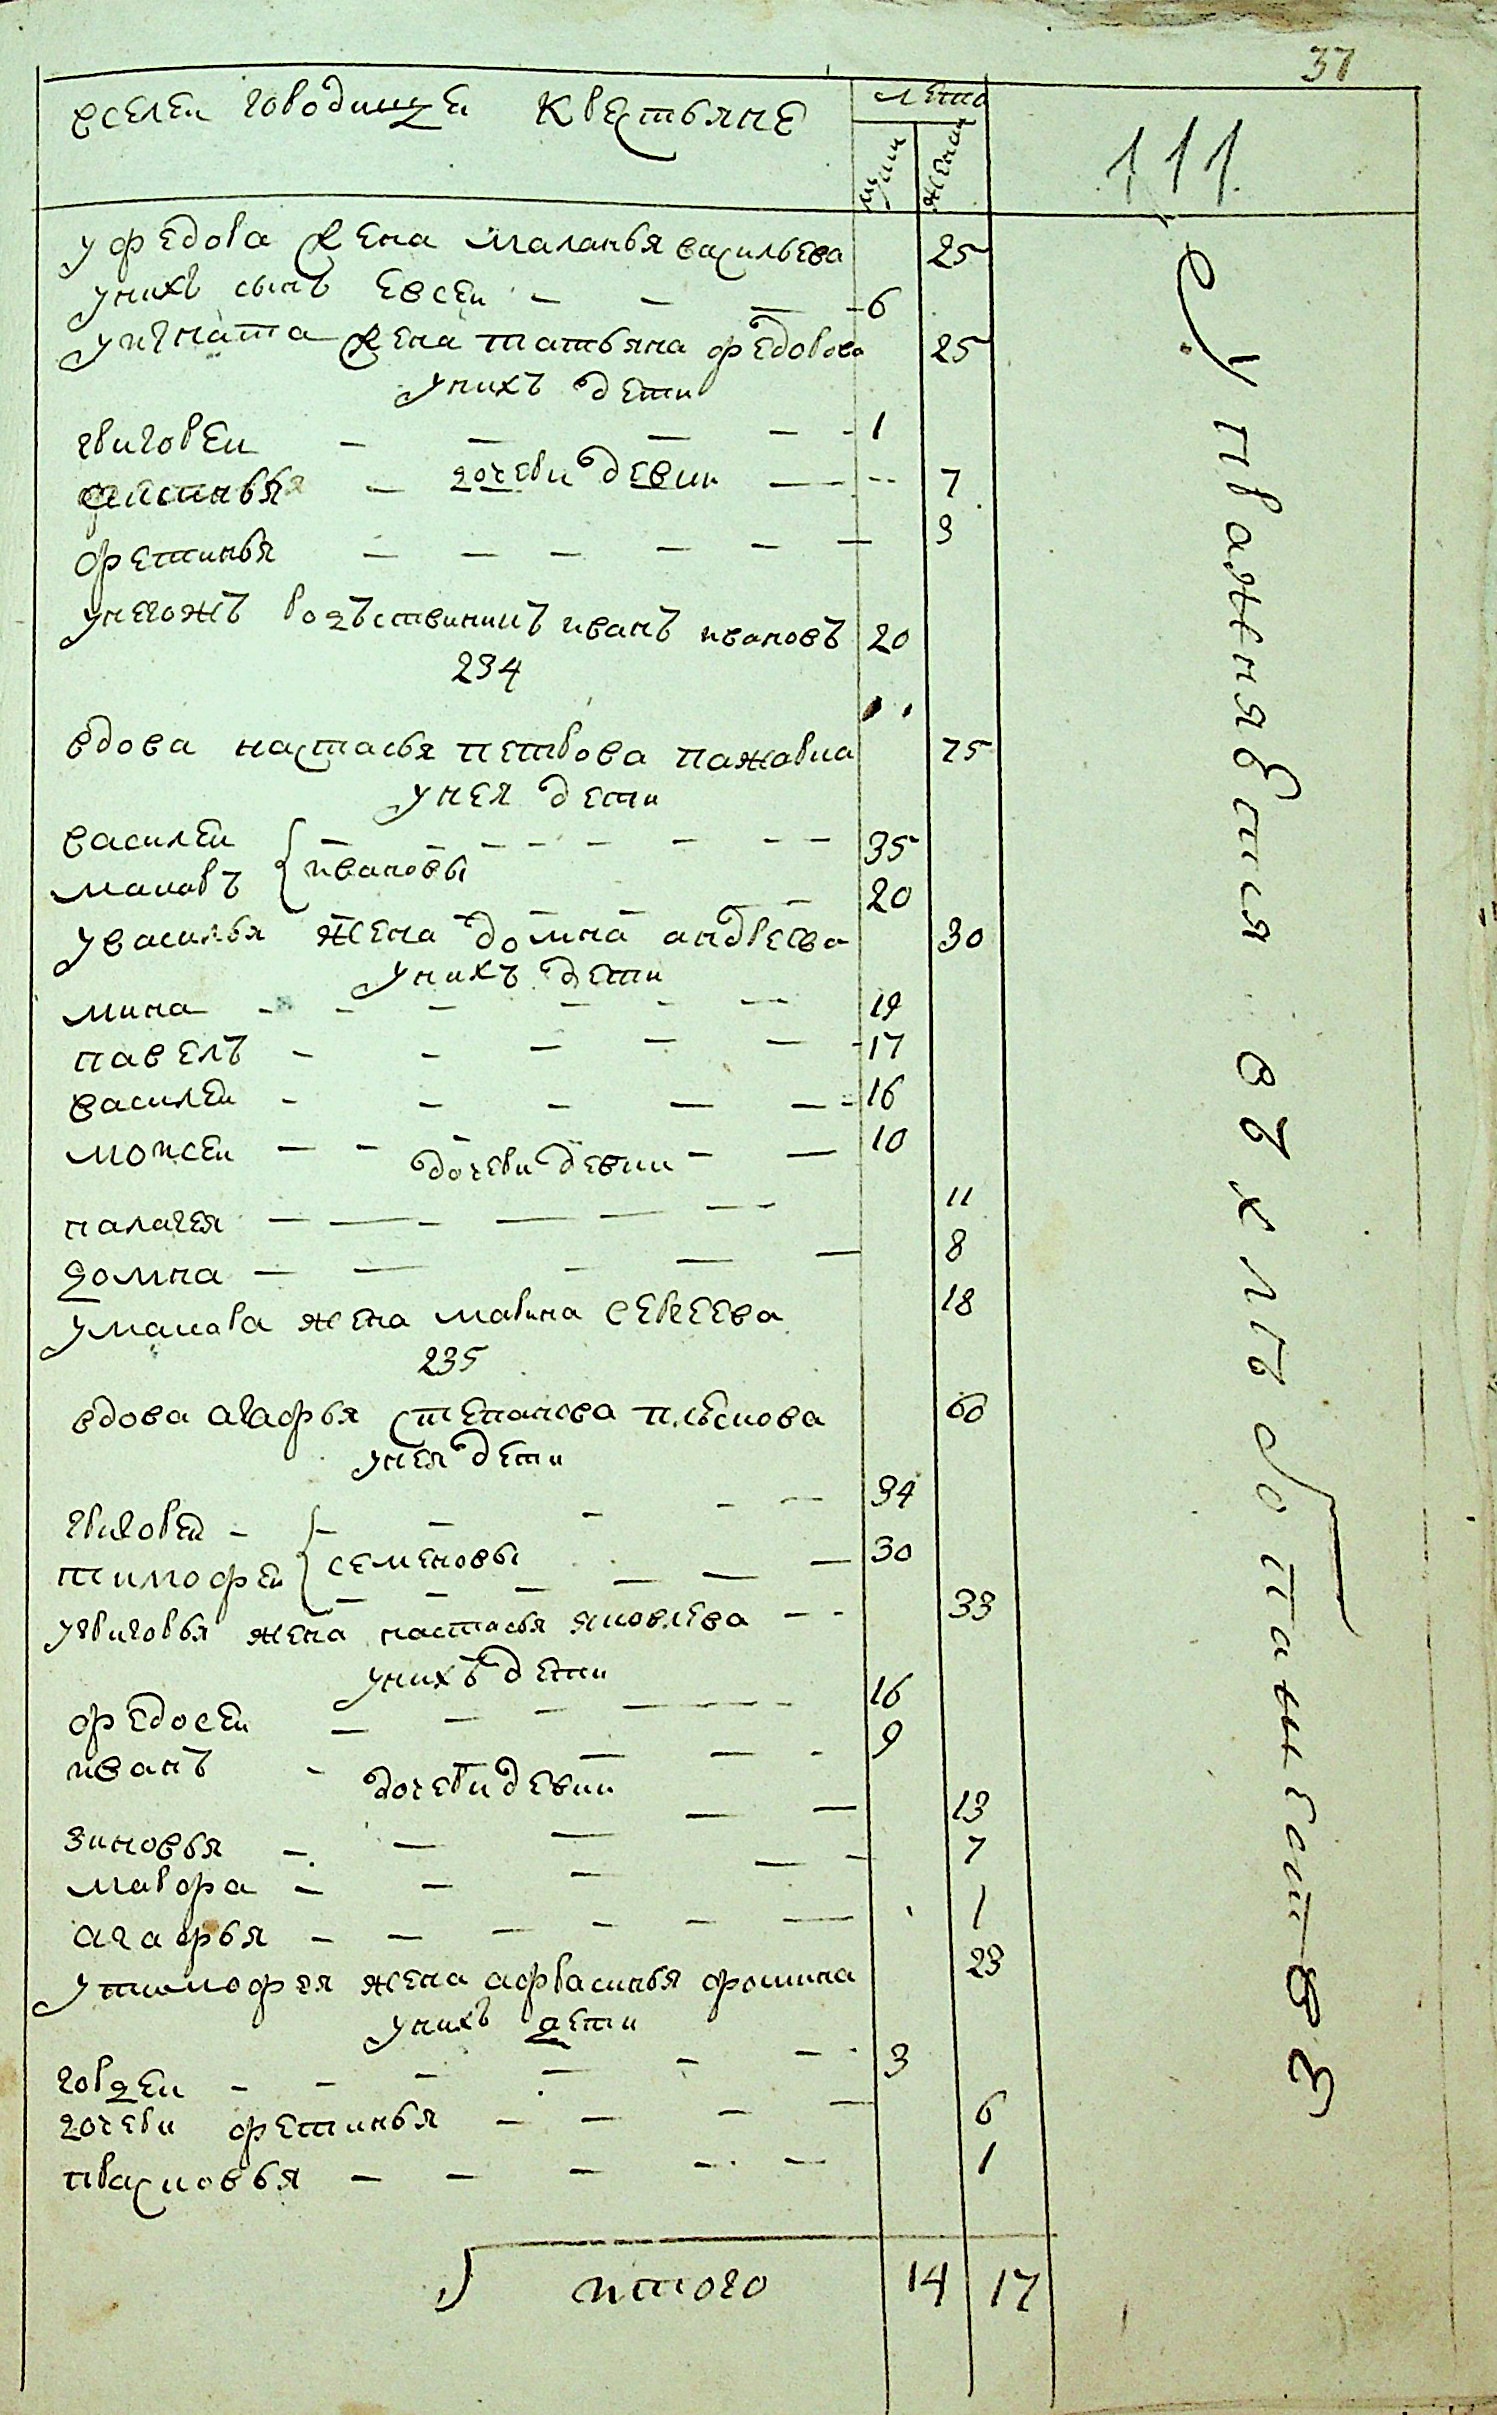 37
вселеи городище крестьяне
лета
муж
женс
111
уфедора жена маланья васильева 25
унихъ сынъ евсеи 6
уигната жена татьяна федорова 25
унихъ дети
григореи 1
дочери девки
7
фетинья 3
унегожъ родственникъ иванъ ивановъ 20
234
вдова настасья петрова 75
унея дети
василеи 35
ивановы
макаръ 20
увасилья жена домна андреева 30
унихъ дети
мина 19
павелъ 17
василеи 16
моисеи 10
дочери девки
палагея 11
домна 8
умакара жена марина сергеева 18
235
вдова агафья степанова 60
унея дети
григореи 34
семеновы
тимофеи 30
угригорья жена настасья яковлева 33
унихъ дети
федосеи 16
иванъ 9
дочери девки
зиновья 13
марфа 7
агафья 1
утимофея жена афросинья фомина 23
унихъ дети
гордеи 3
дочери фетинья 6
прасковья 1
итого 14 17